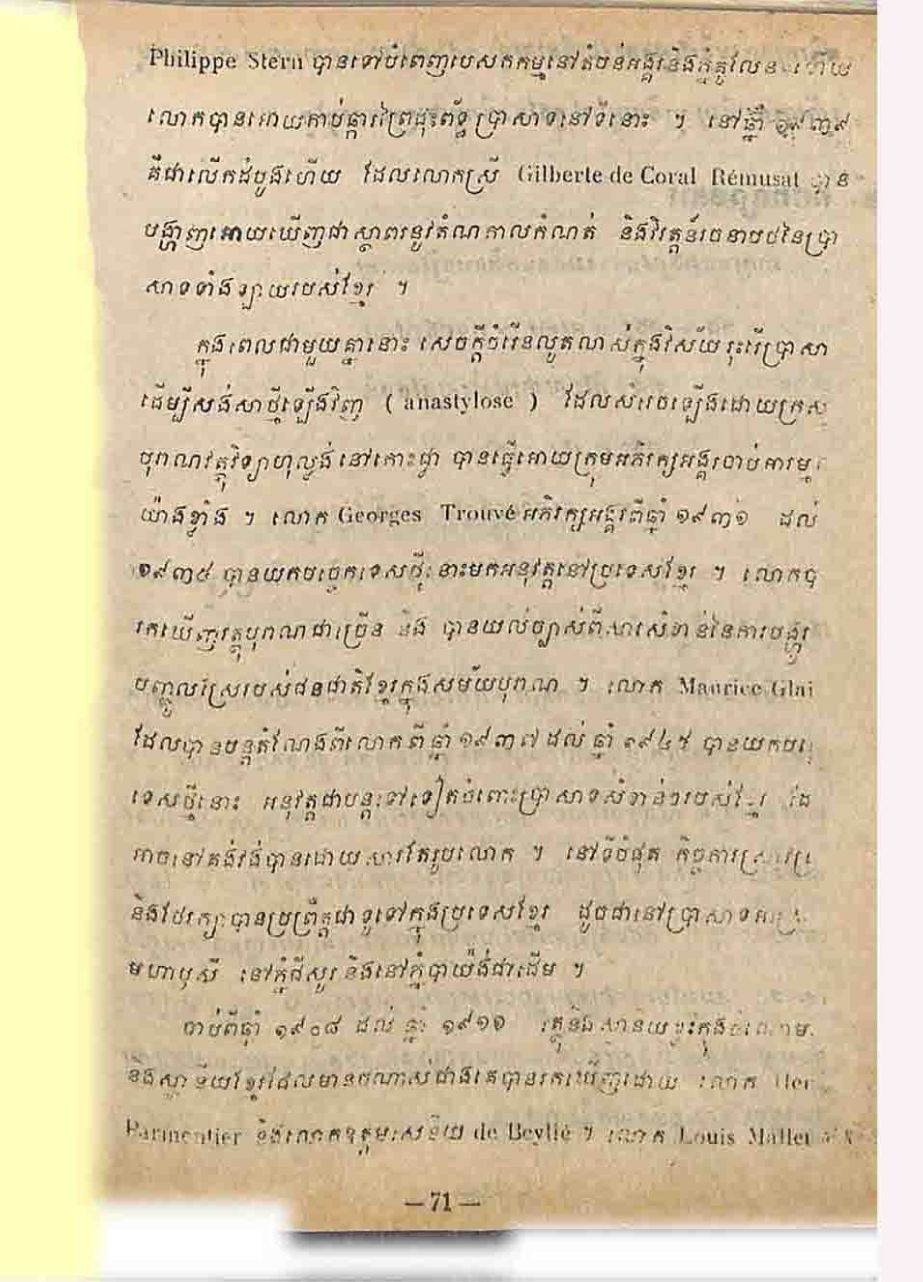 Philippe Stern បានទៅបំពេញបេសកកម្មនៅតំបន់អង្គរនិងភ្នំគូលែន ហើយ
លោកបានអោយកាប់ផ្ការព្រៃដុះព័ទ្ធប្រាសាទនៅទីនោះ ។ នៅឆ្នាំ ១៩៣៩
គឺជាលើកដំបូងហើយ ដែលលោកស្រី Gilberte de Coral Rémusat បាន
បង្ហាញអោយឃើញជាស្ថាពរនូវតំណកាលកំណត់ និងវិវត្តន៍រចនាបថនៃប្រា
សាទទាំងឡាយរបស់ខ្មែរ ។
ក្នុងពេលជាមួយគ្នានោះ សេចក្ដីចំរើនលូតលាស់ក្នុងវិស័យរុះរើប្រាសា
ដើម្បីសង់សាថ្មីឡើងវិញ ( anastylose ) ដែលសំរេចឡើងដោយក្រស
បុរាណវត្ថុវិទ្យាហុល្លង់នៅកោះជ្វា បានធ្វើអោយក្រុមអភិរក្សអង្គរចាប់អារម្ម
យ៉ាងខ្លាំង ។ លោក Georges Trouvé អភិរក្សអង្គរពីឆ្នាំ ១៩៣១ ដល់
១៩៣៥ បានយកបច្ចេកទេសថ្មីនោះមកអនុវត្តនៅប្រទេសខ្មែរ ។ លោកបា
រកឃើញវត្ថុបុរាណជាច្រើន និង បានយល់ច្បាស់ពីសារសំខាន់នៃការបង្ហូរ
បញ្ចូលស្រែរបស់ជនជាតិខ្មែរក្នុងសម័យបុរាណ ។ លោក Maurice Glai
ដែលបានបន្តតំណែងពីលោក ពីឆ្នាំ ១៩៣៧ ដល់ ឆ្នាំ ១៩៤៥ បានយកបច្ច
ទេសថ្មីនោះ អនុវត្តជាបន្តទៅទៀតចំពោះប្រាសាទសំខាន់ៗរបស់ខ្មែរ ដែ
អាចនៅគង់វង់បានដោយសារតែរូបលោក ។ នៅទីបំផុត កិច្ចការស្រាវជ្រ
និងថែរក្សាបានប្រព្រឹត្តជាទូទៅក្នុងប្រទេសខ្មែរ ដូចជានៅប្រាសាទ
មហាឫសី នៅភ្នំជីសូរ និងនៅភ្នំបាយ៉ង់ជាដើម ។
ចាប់ពីឆ្នាំ ១៩០៨ ដល់ ឆ្នាំ ១៩១១
និងស្ថានីយខ្មែរដែលមានចំណាស់ជាងគេបានរកឃើញដោយ លោក
Parmentier និងលោកឧត្តមសេនីយ de Beylié ។ លោក Louis Malleret
— 71 —